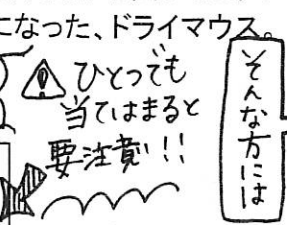 になった、ドライマウス。
ひとつでも
当てはまると
要注意!!
そんな方には